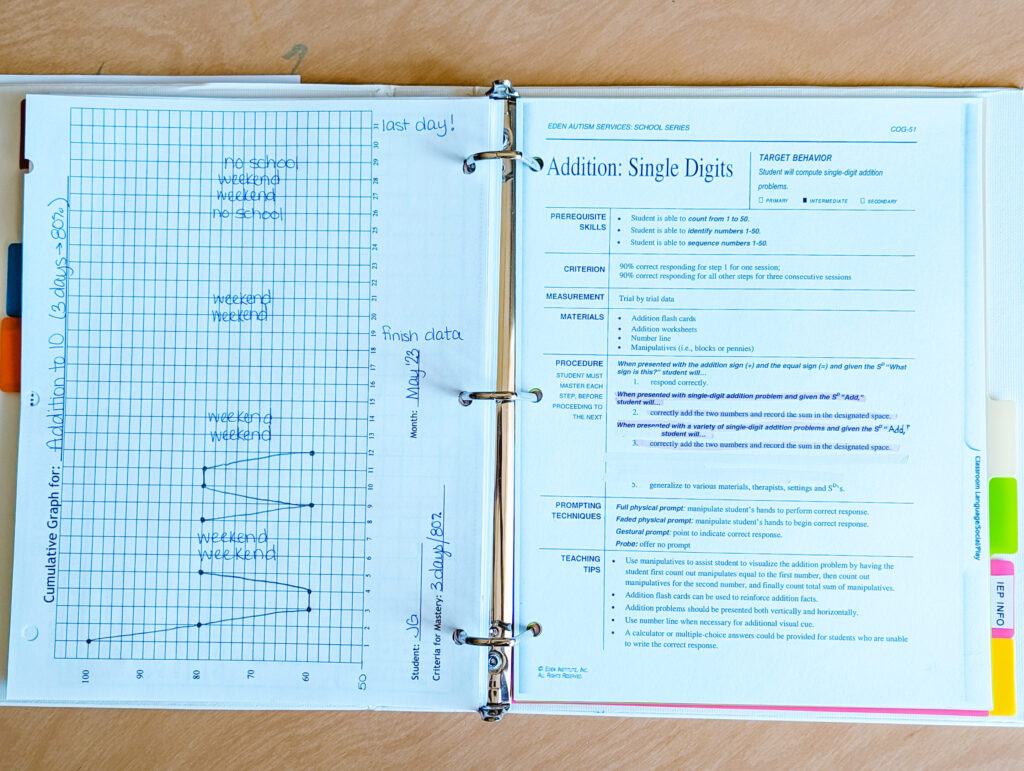 Cumulative Graph for: Addition to 10 (3 days → 80%)
100
90
80
70
60
50
1
2
3
4
5
6
7
8
9
10
11
12
13
14
15
16
17
18
19
20
21
22
23
24
25
26
27
28
29
30
31
weekend
weekend
weekend
weekend
weekend
weekend
no school
weekend
weekend
no school
finish data
last day!
Student: JG
Month: May '23
Criteria for Mastery: 3 days/80%
EDEN AUTISM SERVICES: SCHOOL SERIES
COG-51
Addition: Single Digits
TARGET BEHAVIOR
Student will compute single-digit addition
problems.
PRIMARY INTERMEDIATE SECONDARY
PREREQUISITE
SKILLS
• Student is able to count from 1 to 50.
• Student is able to identify numbers 1-50.
• Student is able to sequence numbers 1-50.
CRITERION
90% correct responding for step 1 for one session;
90% correct responding for all other steps for three consecutive sessions
MEASUREMENT
Trial by trial data
MATERIALS
• Addition flash cards
• Addition worksheets
• Number line
• Manipulatives (i.e., blocks or pennies)
PROCEDURE
STUDENT MUST
MASTER EACH
STEP, BEFORE
PROCEEDING TO
THE NEXT
When presented with the addition sign (+) and the equal sign (=) and given the SD "What
sign is this?" student will…
1. respond correctly.
When presented with single-digit addition problem and given the SD "Add,"
student will…
2. correctly add the two numbers and record the sum in the designated space.
When presented with a variety of single-digit addition problems and given the SD "Add,"
student will…
3. correctly add the two numbers and record the sum in the designated space.
generalize to various materials, therapists, settings and SD's.
PROMPTING
TECHNIQUES
Full physical prompt: manipulate student's hands to perform correct response.
Faded physical prompt: manipulate student's hands to begin correct response.
Gestural prompt: point to indicate correct response.
Probe: offer no prompt
TEACHING
TIPS
• Use manipulatives to assist student to visualize the addition problem by having the
student first count out manipulates equal to the first number, then count out
manipulatives for the second number, and finally count total sum of manipulatives.
• Addition flash cards can be used to reinforce addition facts.
• Addition problems should be presented both vertically and horizontally.
• Use number line when necessary for additional visual cue.
• A calculator or multiple-choice answers could be provided for students who are unable
to write the correct response.
© EDEN INSTITUTE, INC.
ALL RIGHTS RESERVED.
Classroom Language/Social/Play
IEP INFO